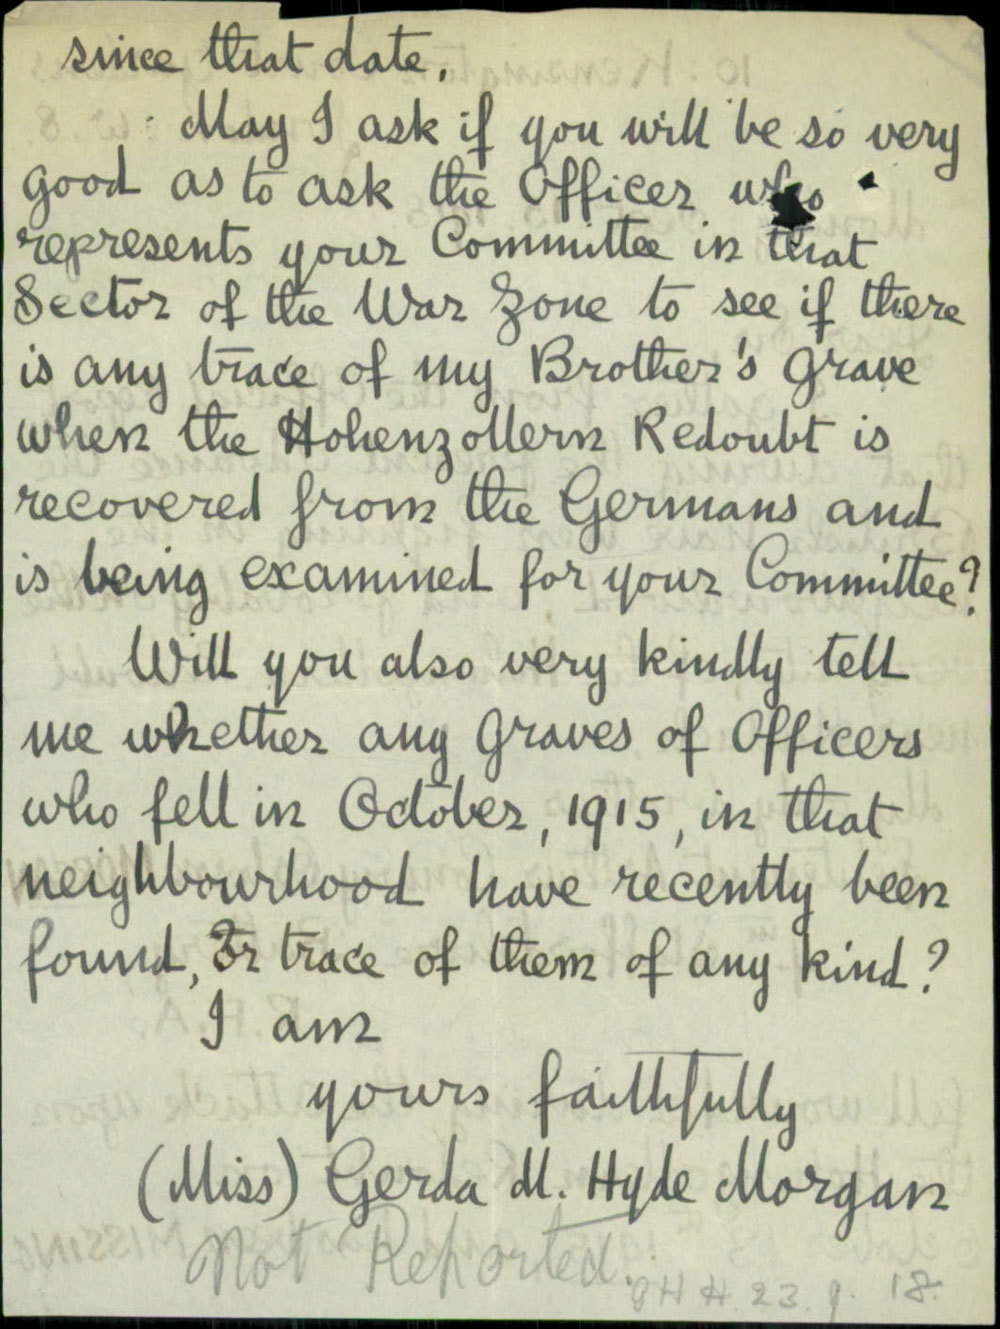 since that date.
May I ask if you will be so very
good as to ask the Officer who
represents your Committee in that
Sector of the War Zone to see if there
is any trace of my Brother's grave
when the Hohenzollern Redoubt is
recovered from the Germans and
is being examined for your Committee?
Will you also very kindly tell
me whether any graves of Officers
who fell in October, 1915, in that
neighbourhood have recently been
found, or trace of them of any kind?
I am
yours faithfully
(Miss) Gerda M. Hyde Morgan
Not Reported.
HH. 23. 9. 18.